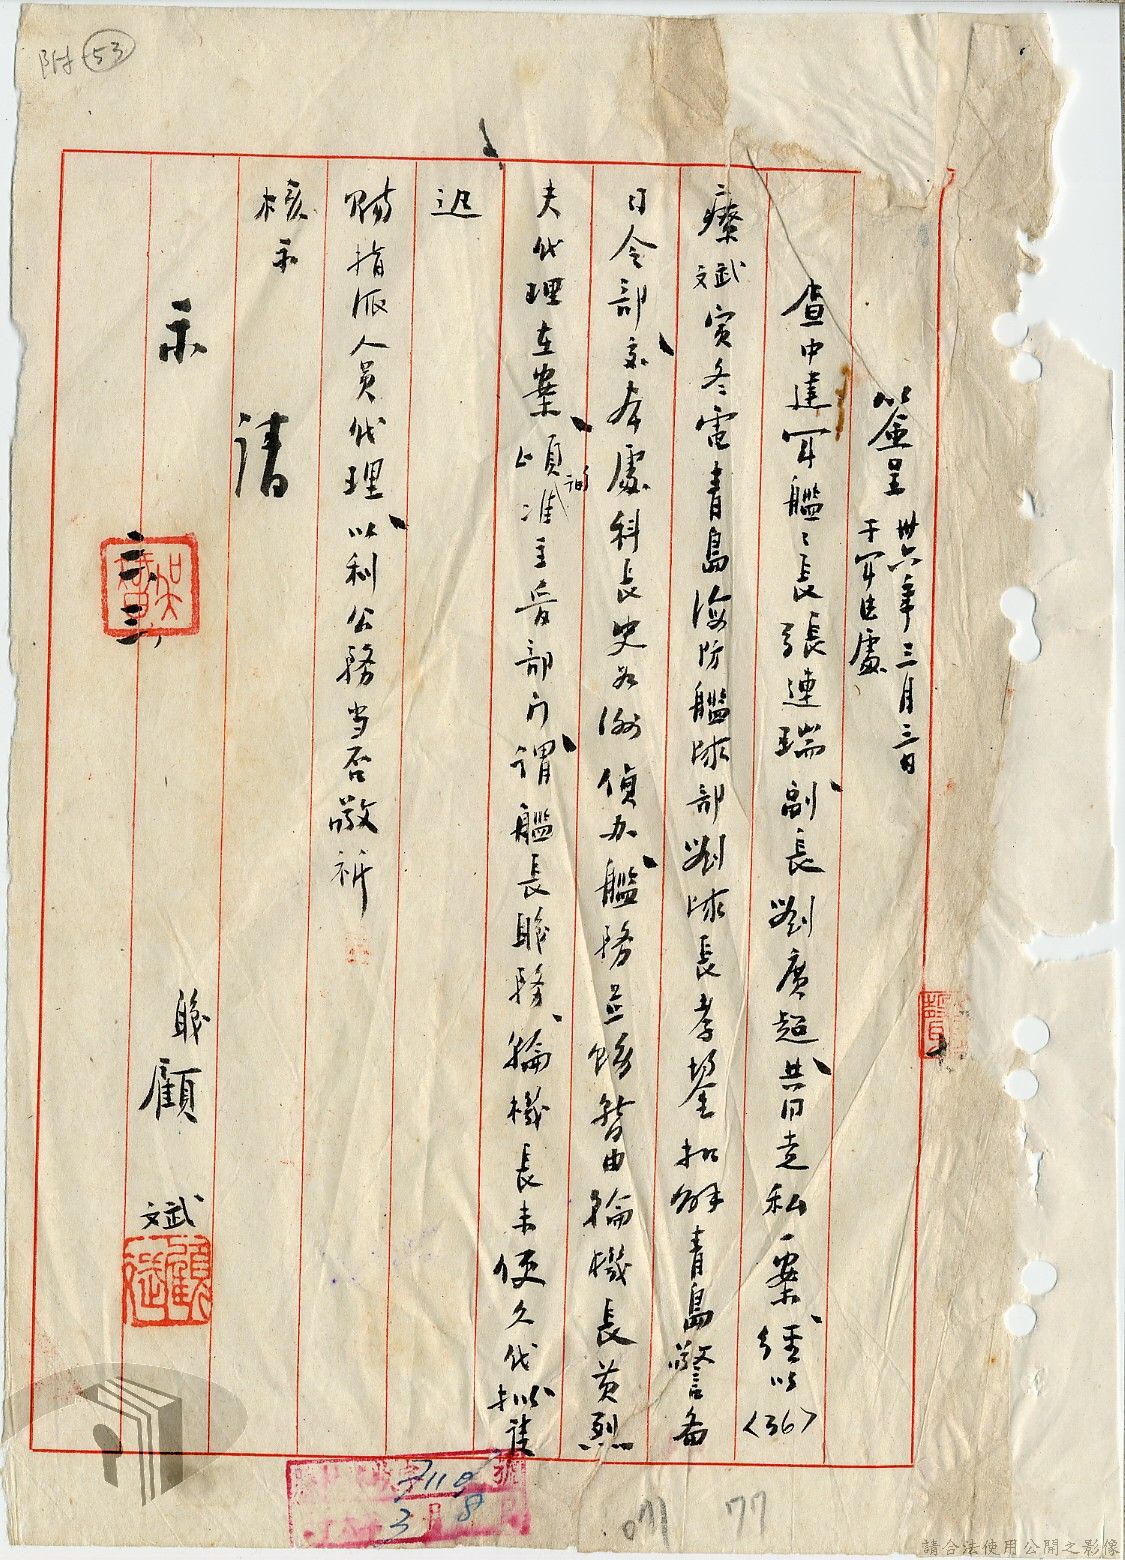 附 53
簽呈 卅六年三月三日
于軍法處
查中建軍艦々長張連瑞副長劉廣超昔日走私一案經以〈36〉
療斌寅冬電青島海防艦隊部劉隊長孝鋆扣解青島警備
司令部交本處科長史久洲偵办艦務並暫由輪機長黃烈
夫代理在案頃准主管部门謂艦長職務輪機長未便久代擬請
迅
賜指派人員代理以利公務当否敬祈
核示
職顧斌
示
請
三.三.
顧斌
3 月 8
77
請合法使用公開之影像